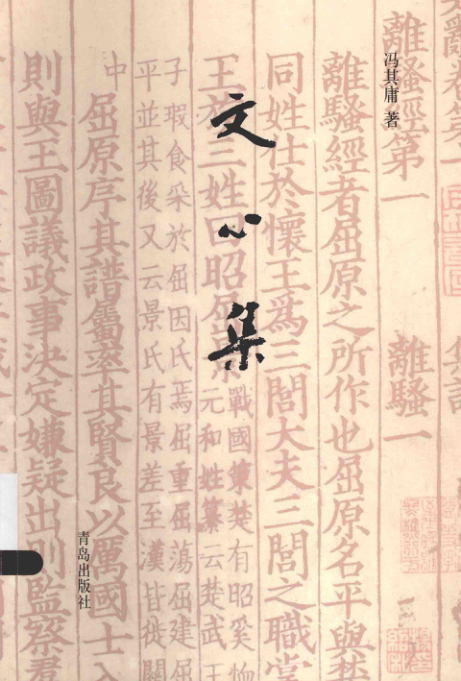 離騷經第一
離騷一
冯其庸 著
離騷經者屈原之所作也屈原名平與楚
同姓仕於懷王爲三閭大夫三閭之職掌
文心集
王族三姓曰昭屈
戰國策楚有昭奚恤
元和姓纂云楚武王
子瑕食采於屈因氏焉屈重屈蕩屈建屈
平並其後又云景氏有景差至漢皆徙關
中
屈原序其譜屬率其賢良以厲國士入
則與王圖議政事決定嫌疑出則監察羣
青岛出版社